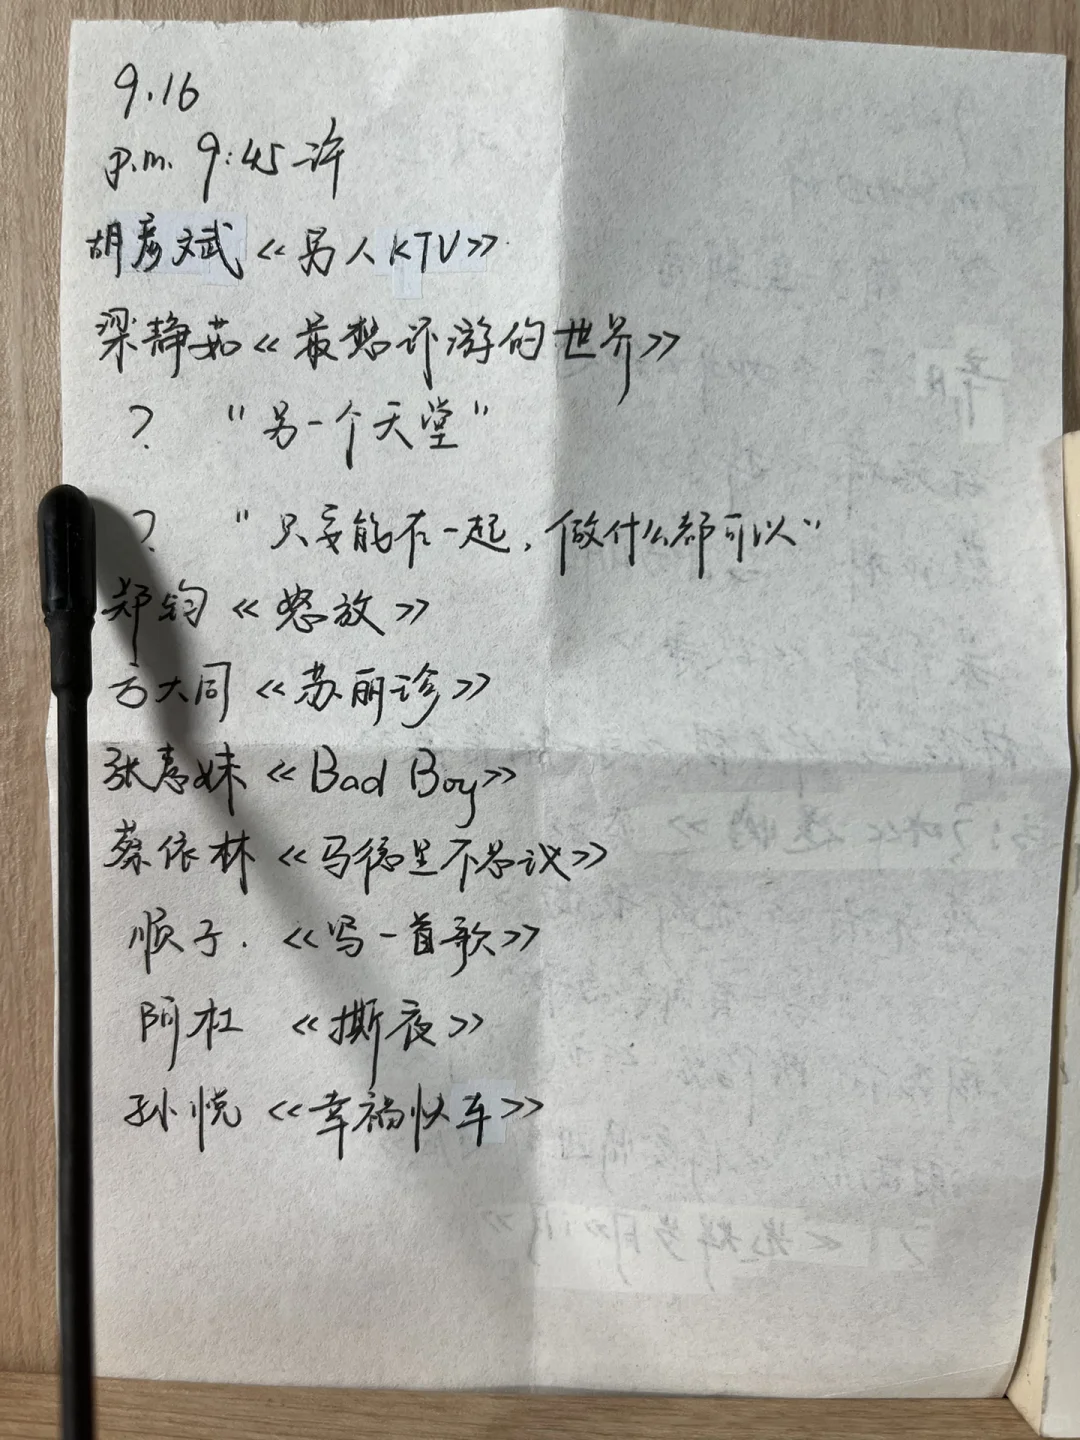 9.16
p.m. 9:45 许
胡彦斌《男人KTV》
梁静茹《最想环游的世界》
? "另一个天堂"
? "只要能在一起,做什么都可以"
郑钧《怒放》
方大同《苏丽珍》
张惠妹《Bad Boy》
蔡依林《马德里不思议》
顺子.《写一首歌》
阿杜《撕夜》
孙悦《幸福快车》